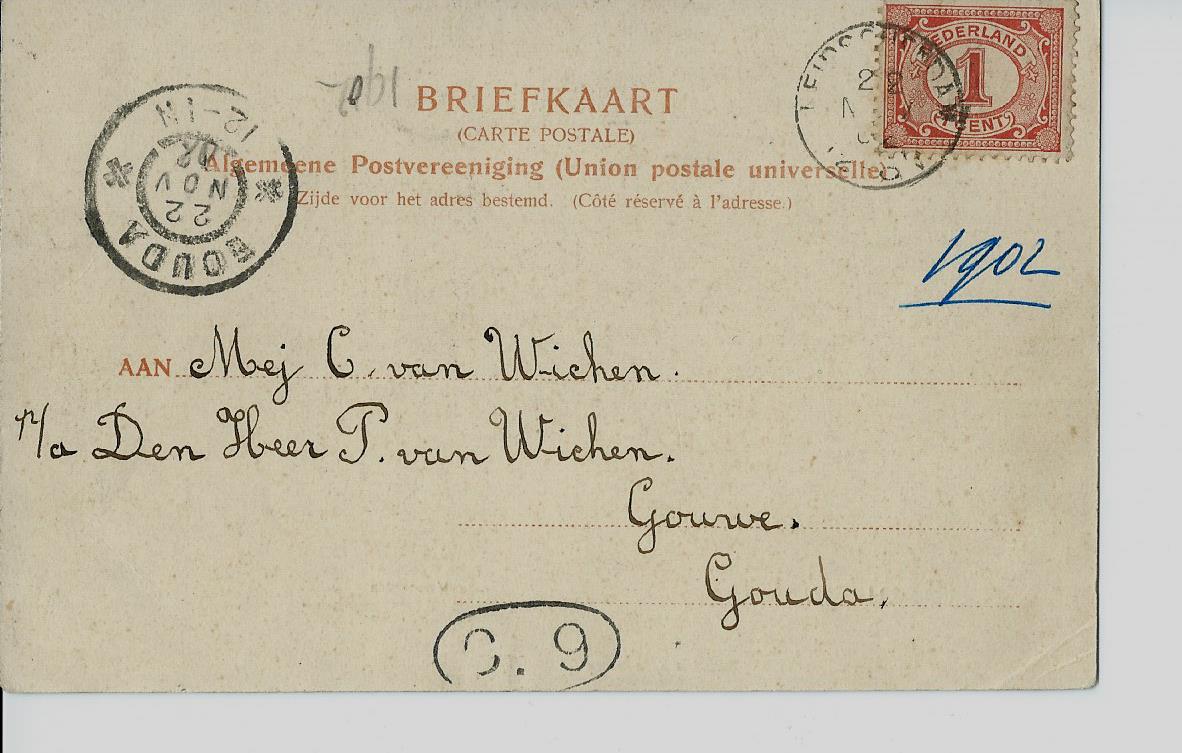 190
BRIEFKAART
(CARTE POSTALE)
Algemeene Postvereeniging (Union postale universelle)
Zijde voor het adres bestemd. (Côté réservé à l'adresse.)
NEDERLAND
1
CENT
LEIDSCHENDAM
22
GOUDA
22
NOV
02
12-1N
1902
AAN Mej C. van Wichen.
p/a Den Heer P. van Wichen.
Gouwe.
Gouda.
C. 9